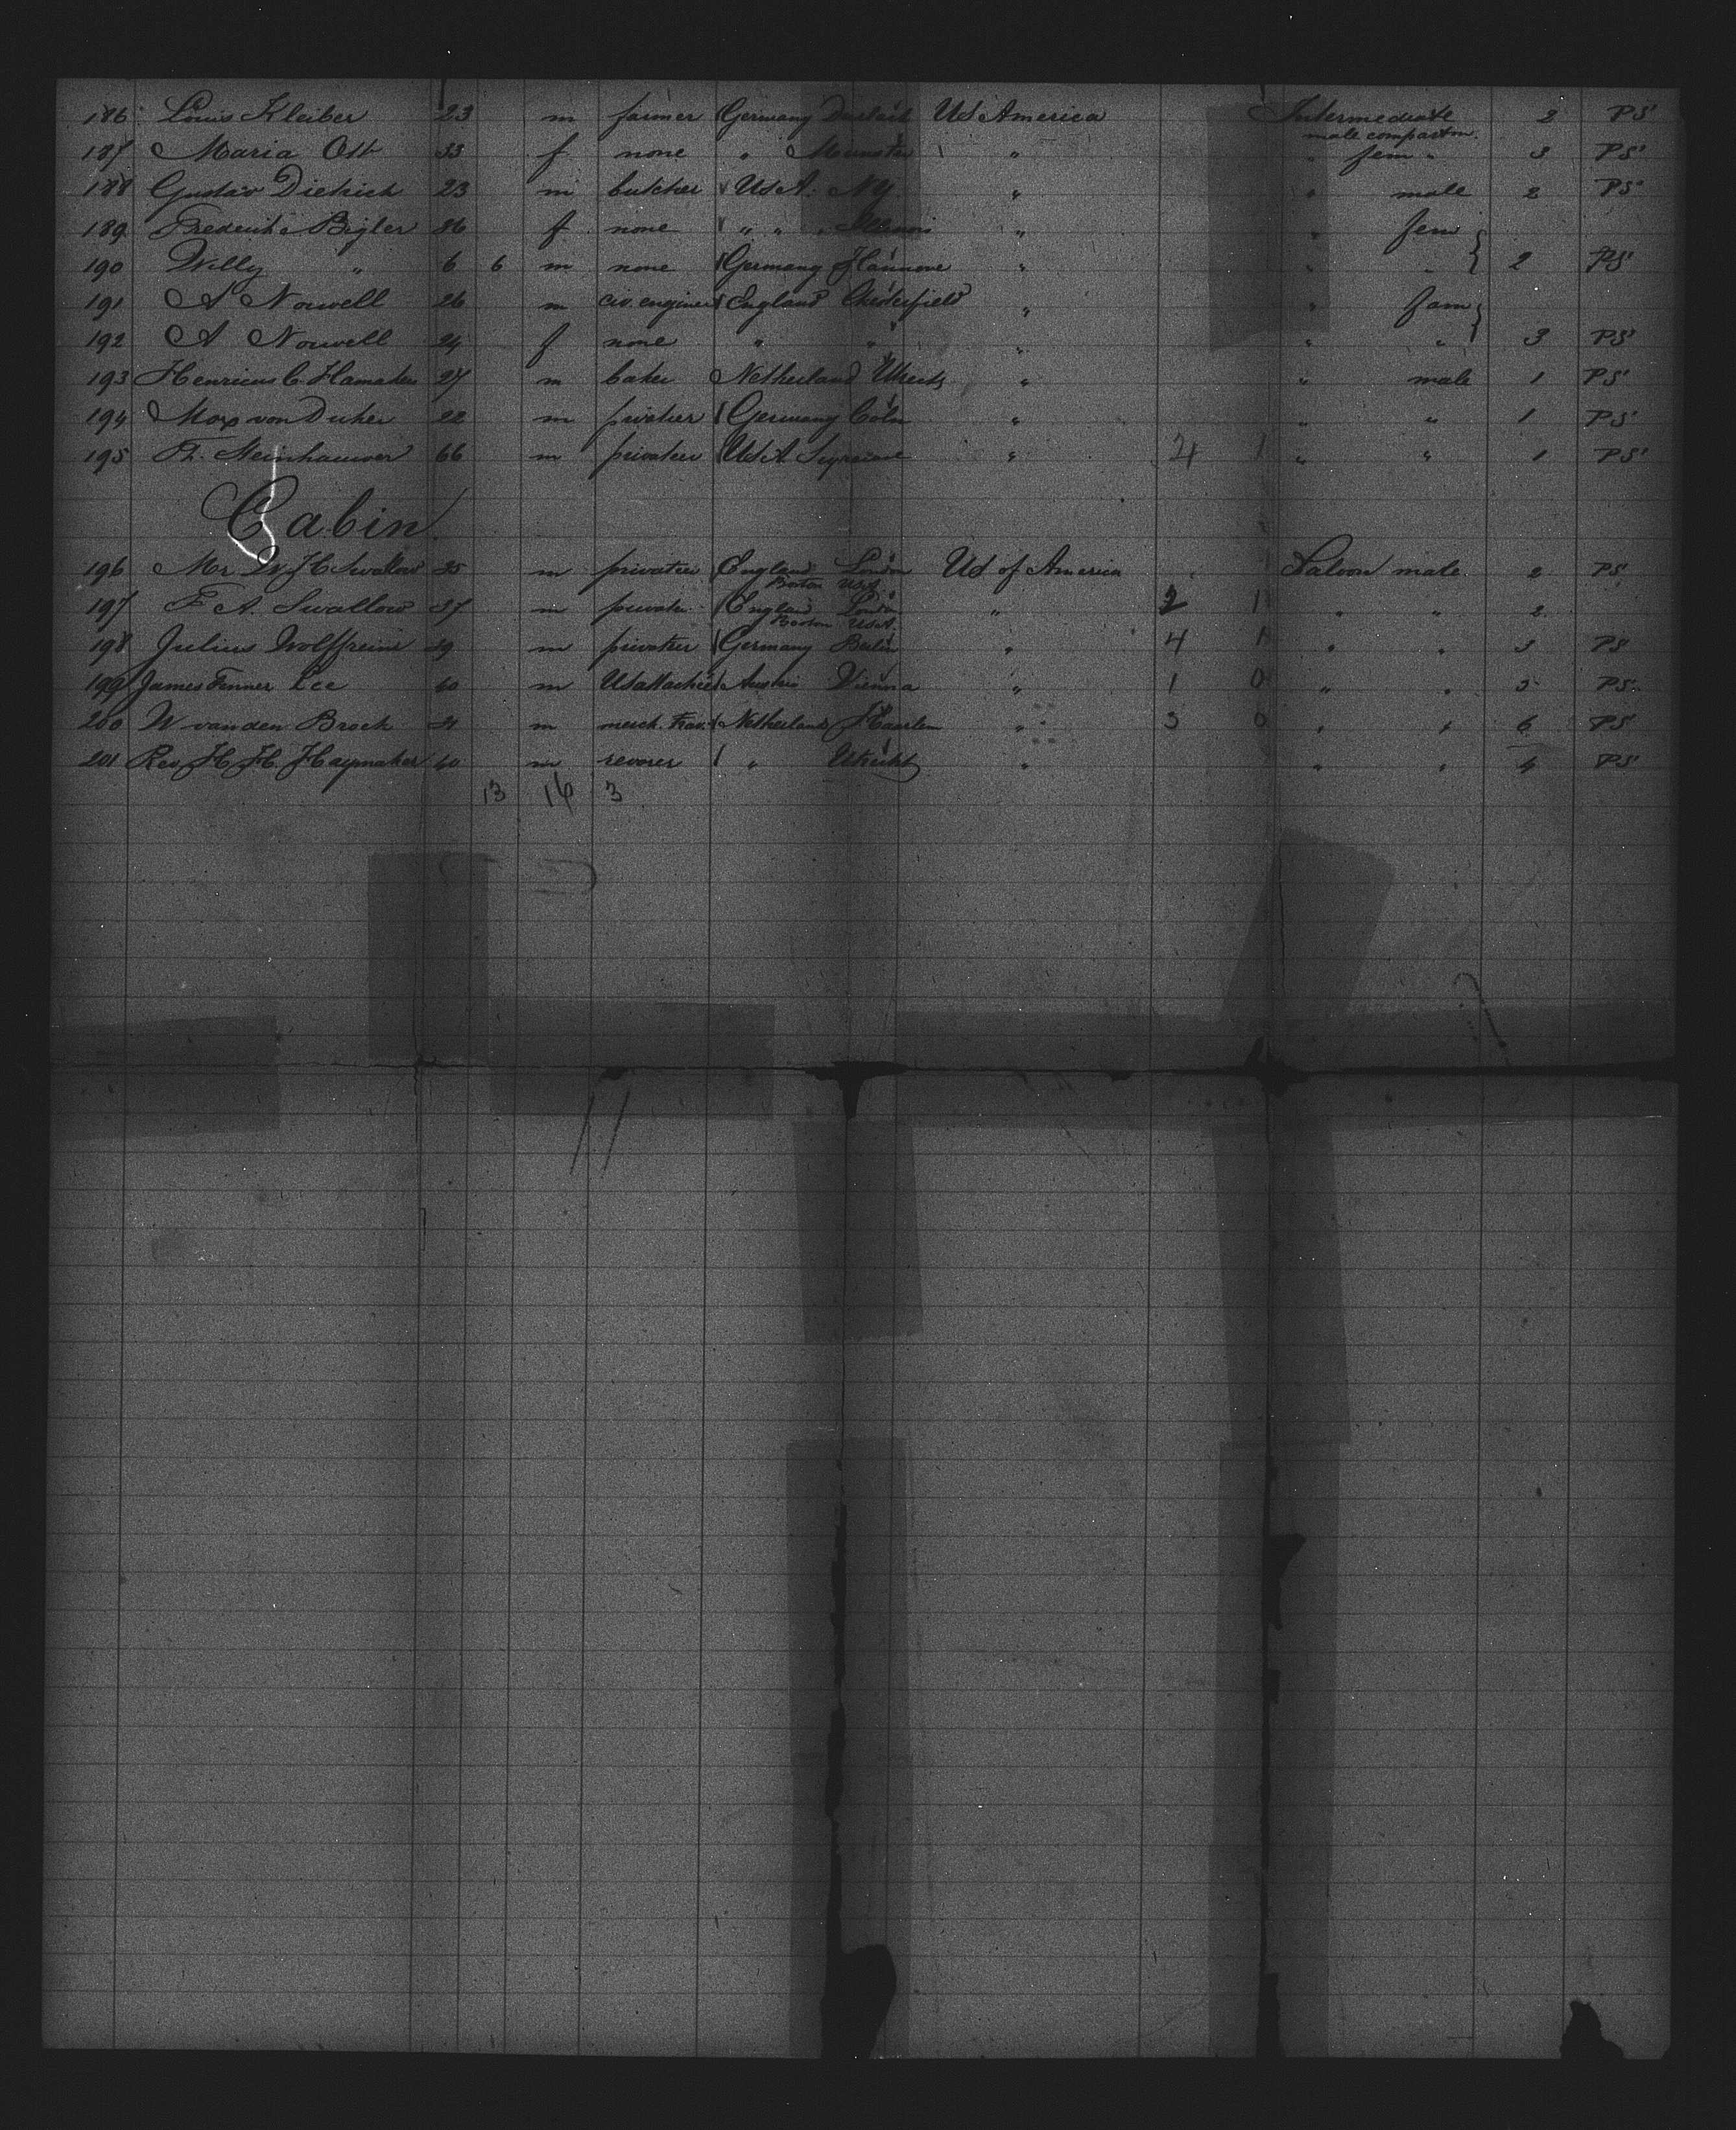 186 Louis Kleiber 23 m farmer Germany Durlach Us America Intermediate male compartm. 2 PS
187 Maria Ott 33 f none " Munster " " fem " 3 PS
188 Gustav Dietrich 23 m butcher UsA. NY. " " male 2 PS
189 Frederike Bigler 26 f none " " " " fem
190 Willy " 6 6 m none Germany Hannove " " " 2 PS
191 A Norwell 26 m civ. engineer England Chesterfield " " fam
192 A Norwell 24 f none " " " " " 3 PS
193 Henricus C. Hamaker 27 m baker Netherland Utrecht " " male 1 PS
194 Max von Duker 22 m privatier Germany Cöln " " " 1 PS
195 Th. Steinhauser 66 m privatier UsA. " 4 1 " " 1 PS
Cabin
196 Mr W H Swallow 35 m privatier England London Us of America Saloon male 2 PS
Boston UsA
197 F A. Swallow 37 m privatier England London " 2 1 " " 2
Boston UsA.
198 Julius 39 m privatier Germany Berlin " 4 1 " " 3 PS
199 James Fenner Lee 40 m Us attaché Austria Vienna " 1 0 " " 5 PS
200 W van den Broek 21 m merch. Trav. Netherland Haarlem " 3 0 " " 6 PS
201 Rev. H. H. Haymaker 40 m " Utrecht " " " 4 PS
13 16 3